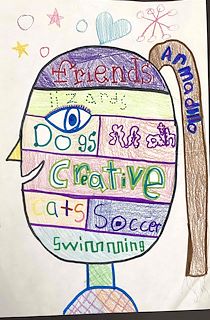 friends
Armadillo
lizards
Dogs
Math
Creative
cats
Soccer
Swimming